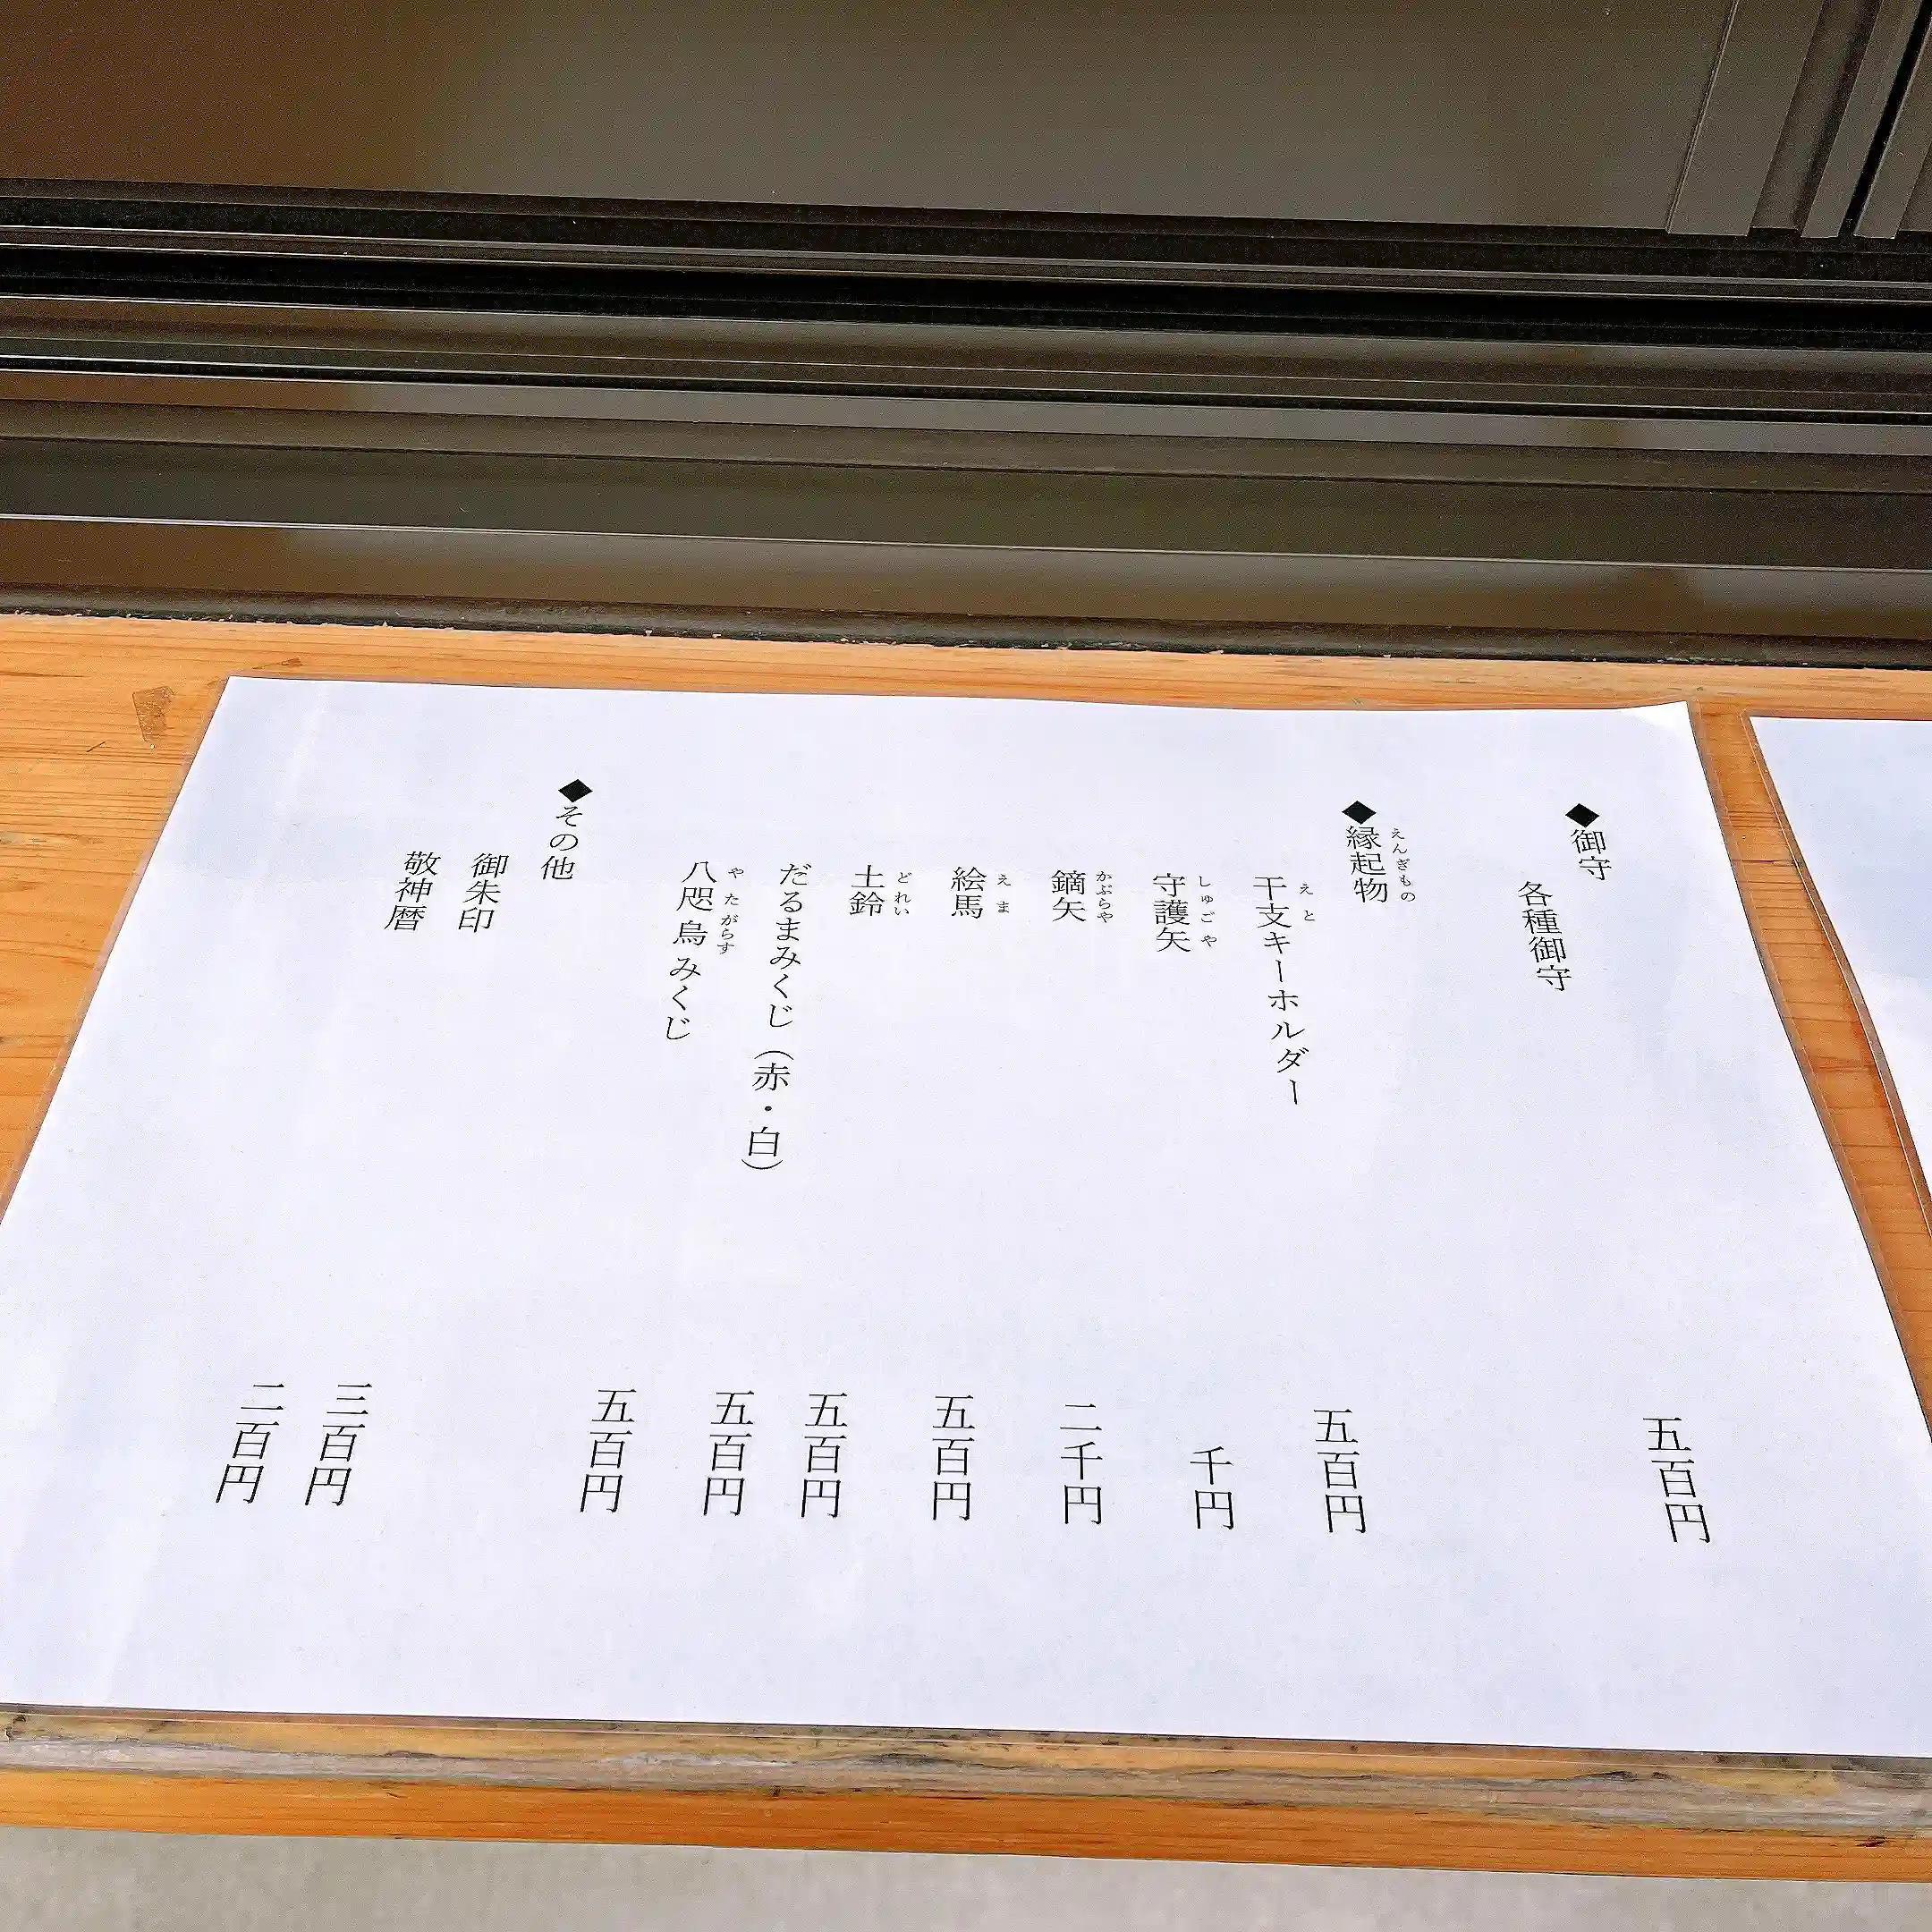 ◆御守
各種御守 五百円
◆縁起物
えんぎもの
干支キーホルダー 五百円
えと
守護矢 千円
しゅごや
鏑矢 二千円
かぶらや
絵馬 五百円
えま
土鈴 五百円
どれい
だるまみくじ（赤・白） 五百円
八咫烏みくじ 五百円
やたがらす
◆その他
御朱印 三百円
敬神暦 二百円